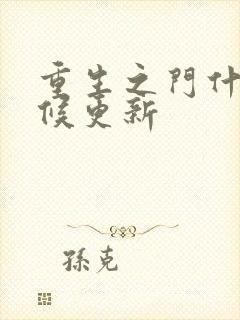 重生之門什
候更新
孫克